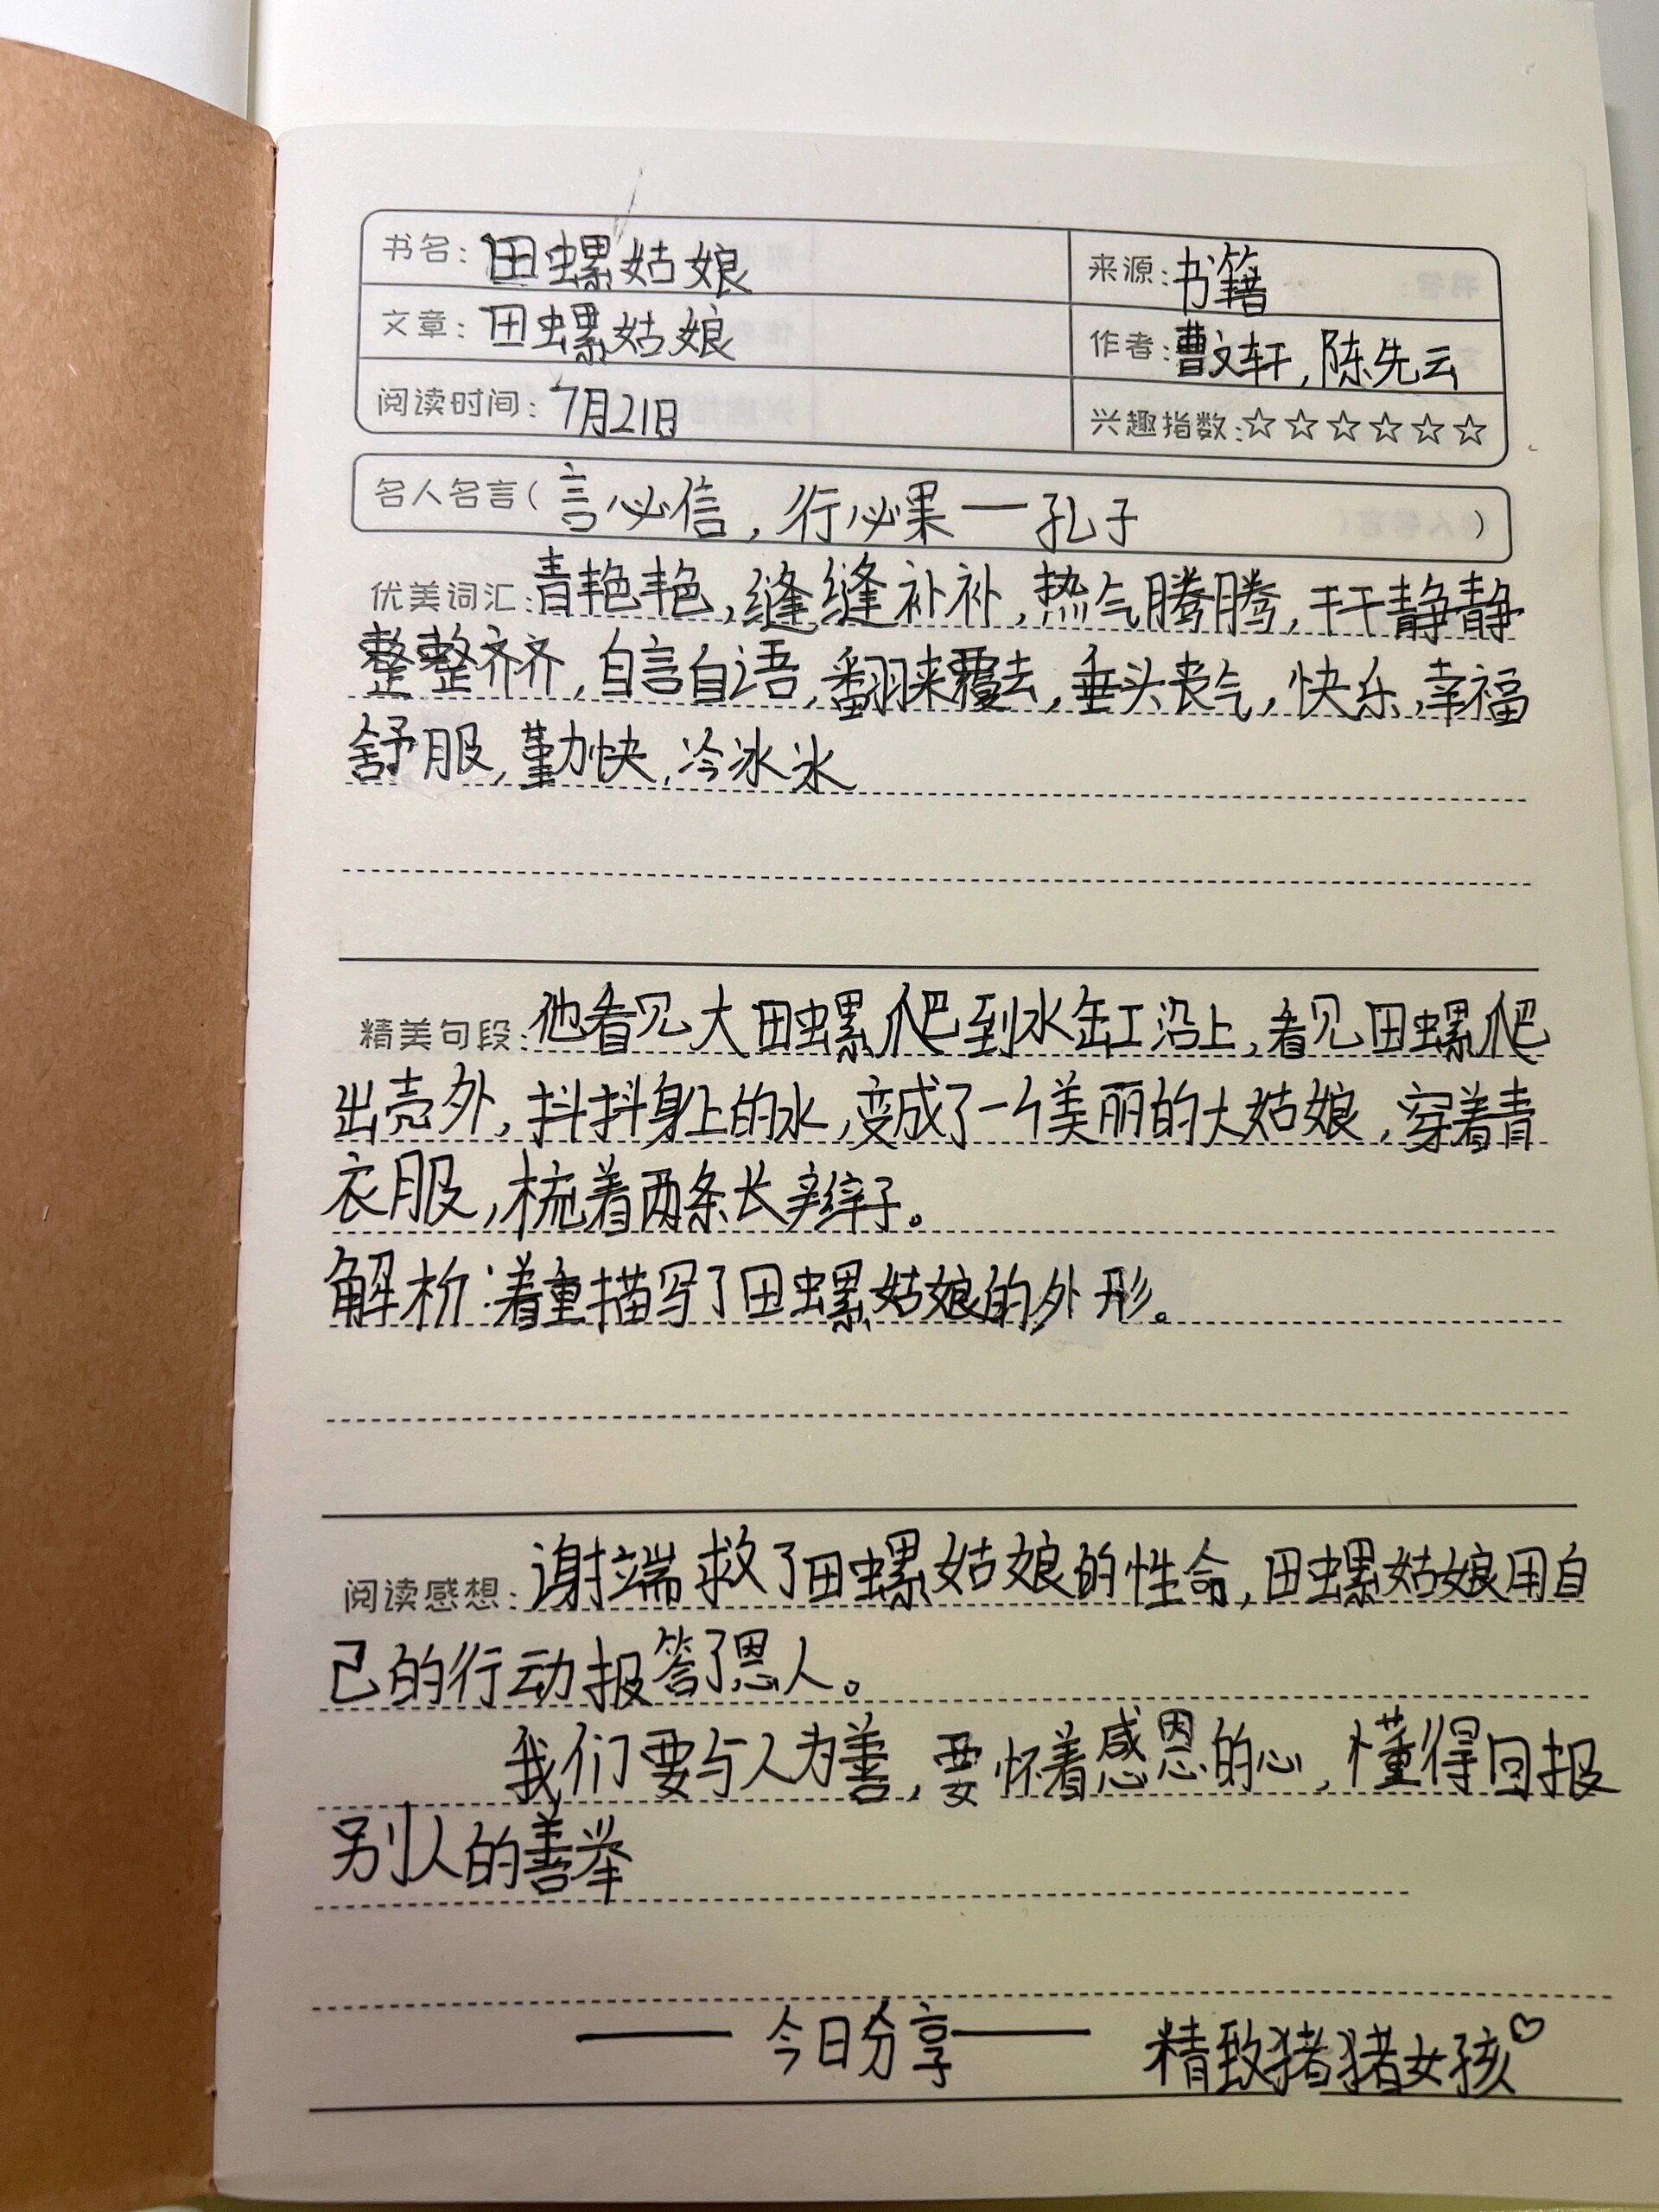 书名：田螺姑娘 来源：书籍
文章：田螺姑娘 作者：曹文轩，陈先云
阅读时间：7月21日 兴趣指数：☆☆☆☆☆☆
名人名言（言必信，行必果——孔子）
优美词汇：青艳艳，缝缝补补，热气腾腾，干干静静
整整齐齐，自言自语，翻来覆去，垂头丧气，快乐，幸福
舒服，勤快，冷冰冰
精美句段：他看见大田螺爬到水缸沿上，看见田螺爬
出壳外，抖抖身上的水，变成了一个美丽的大姑娘，穿着青
衣服，梳着两条长辫子。
解析：着重描写了田螺姑娘的外形。
阅读感想：谢端救了田螺姑娘的性命，田螺姑娘用自
己的行动报答了恩人。
我们要与人为善，要怀着感恩的心，懂得回报
别人的善举
——今日分享—— 精致猪猪女孩♡